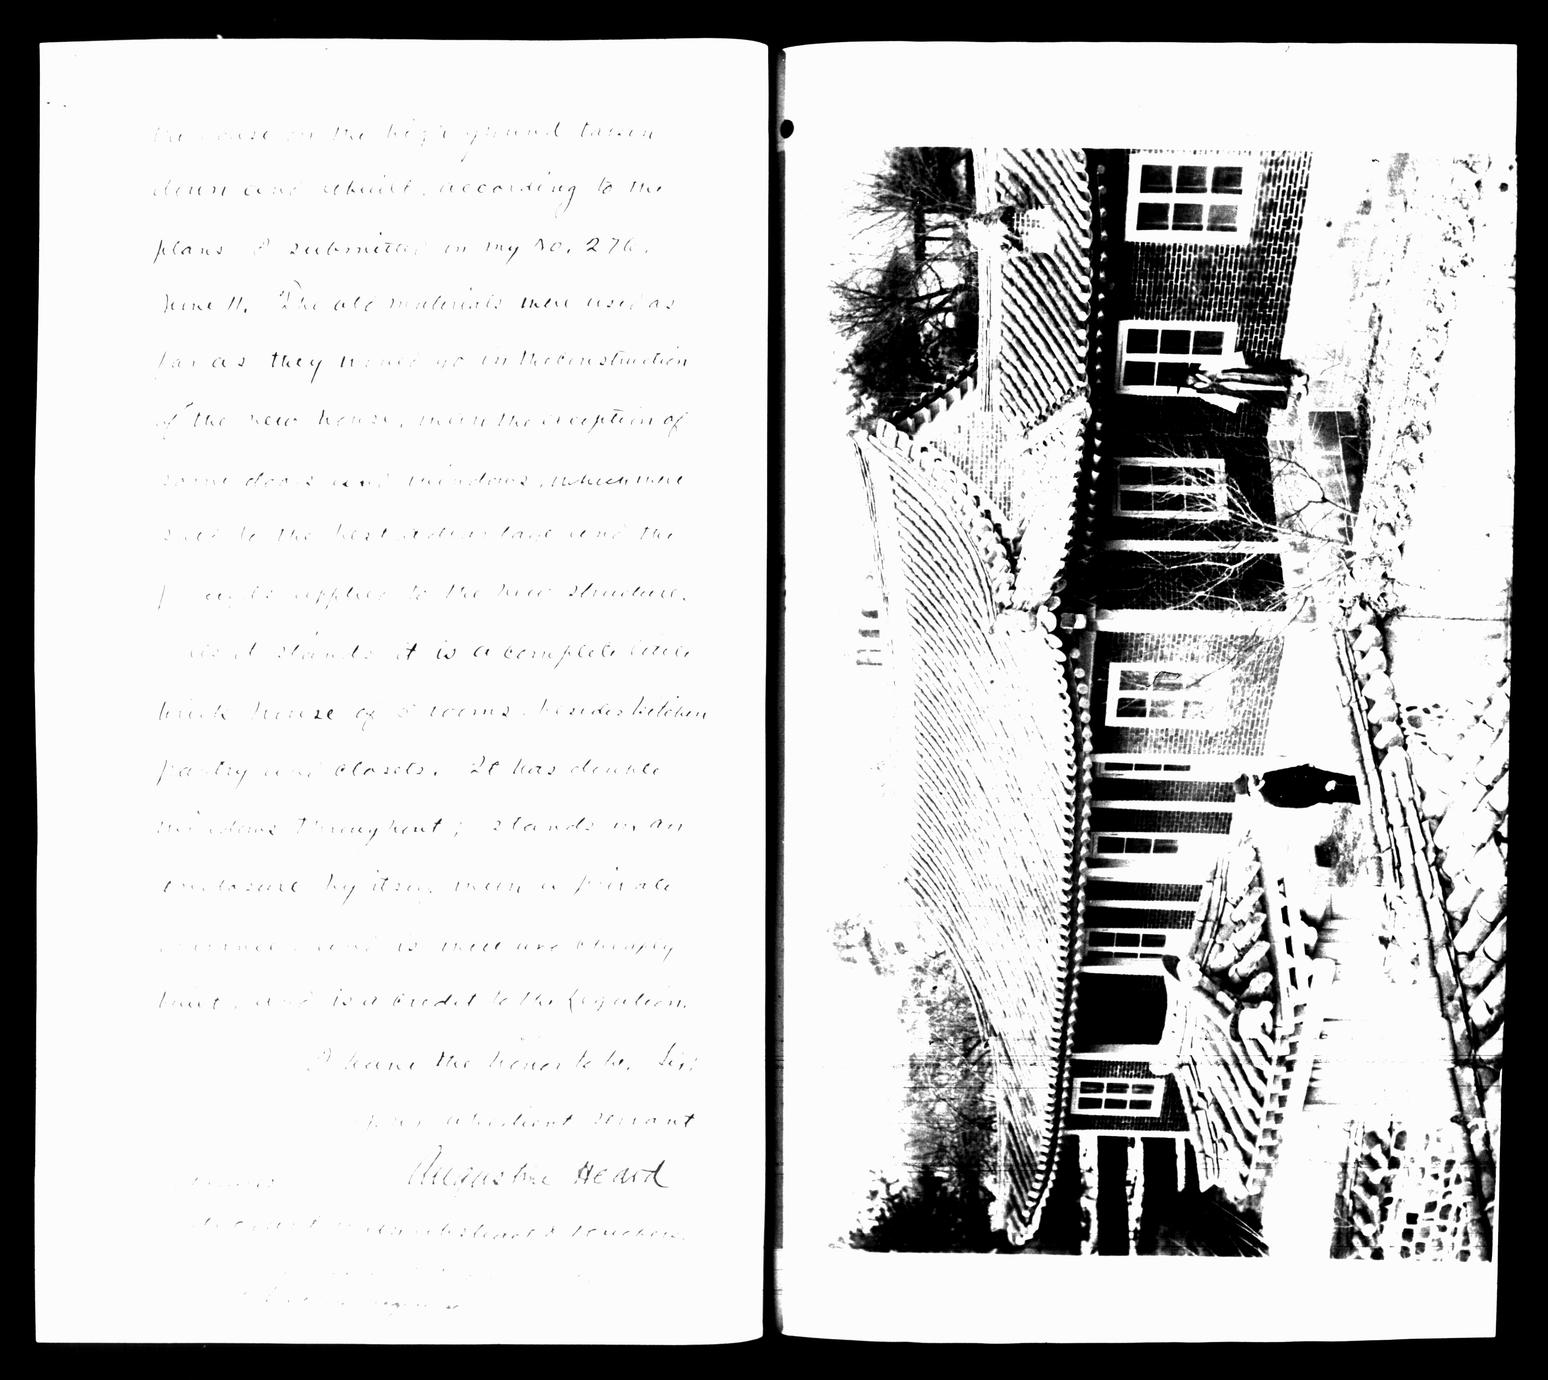 the house on the high ground taken
down and rebuilt, according to the
plans I submitted in my No. 276.
June 11. The old materials were used as
far as they would go in the construction
of the new house, with the exception of
some doors and windows, which were
sold to the best advantage and the
applied to the new structure.
As it stands it is a complete little
brick house of 5 rooms, besides kitchen
pantry and closets. It has double
windows throughout; stands in an
enclosure by itself, with a private
entrance, and is well and cheaply
built, and is a credit to the Legation.
I have the honor to be, Sir,
your obedient servant
Augustine Heard
account abstract & vouchers.